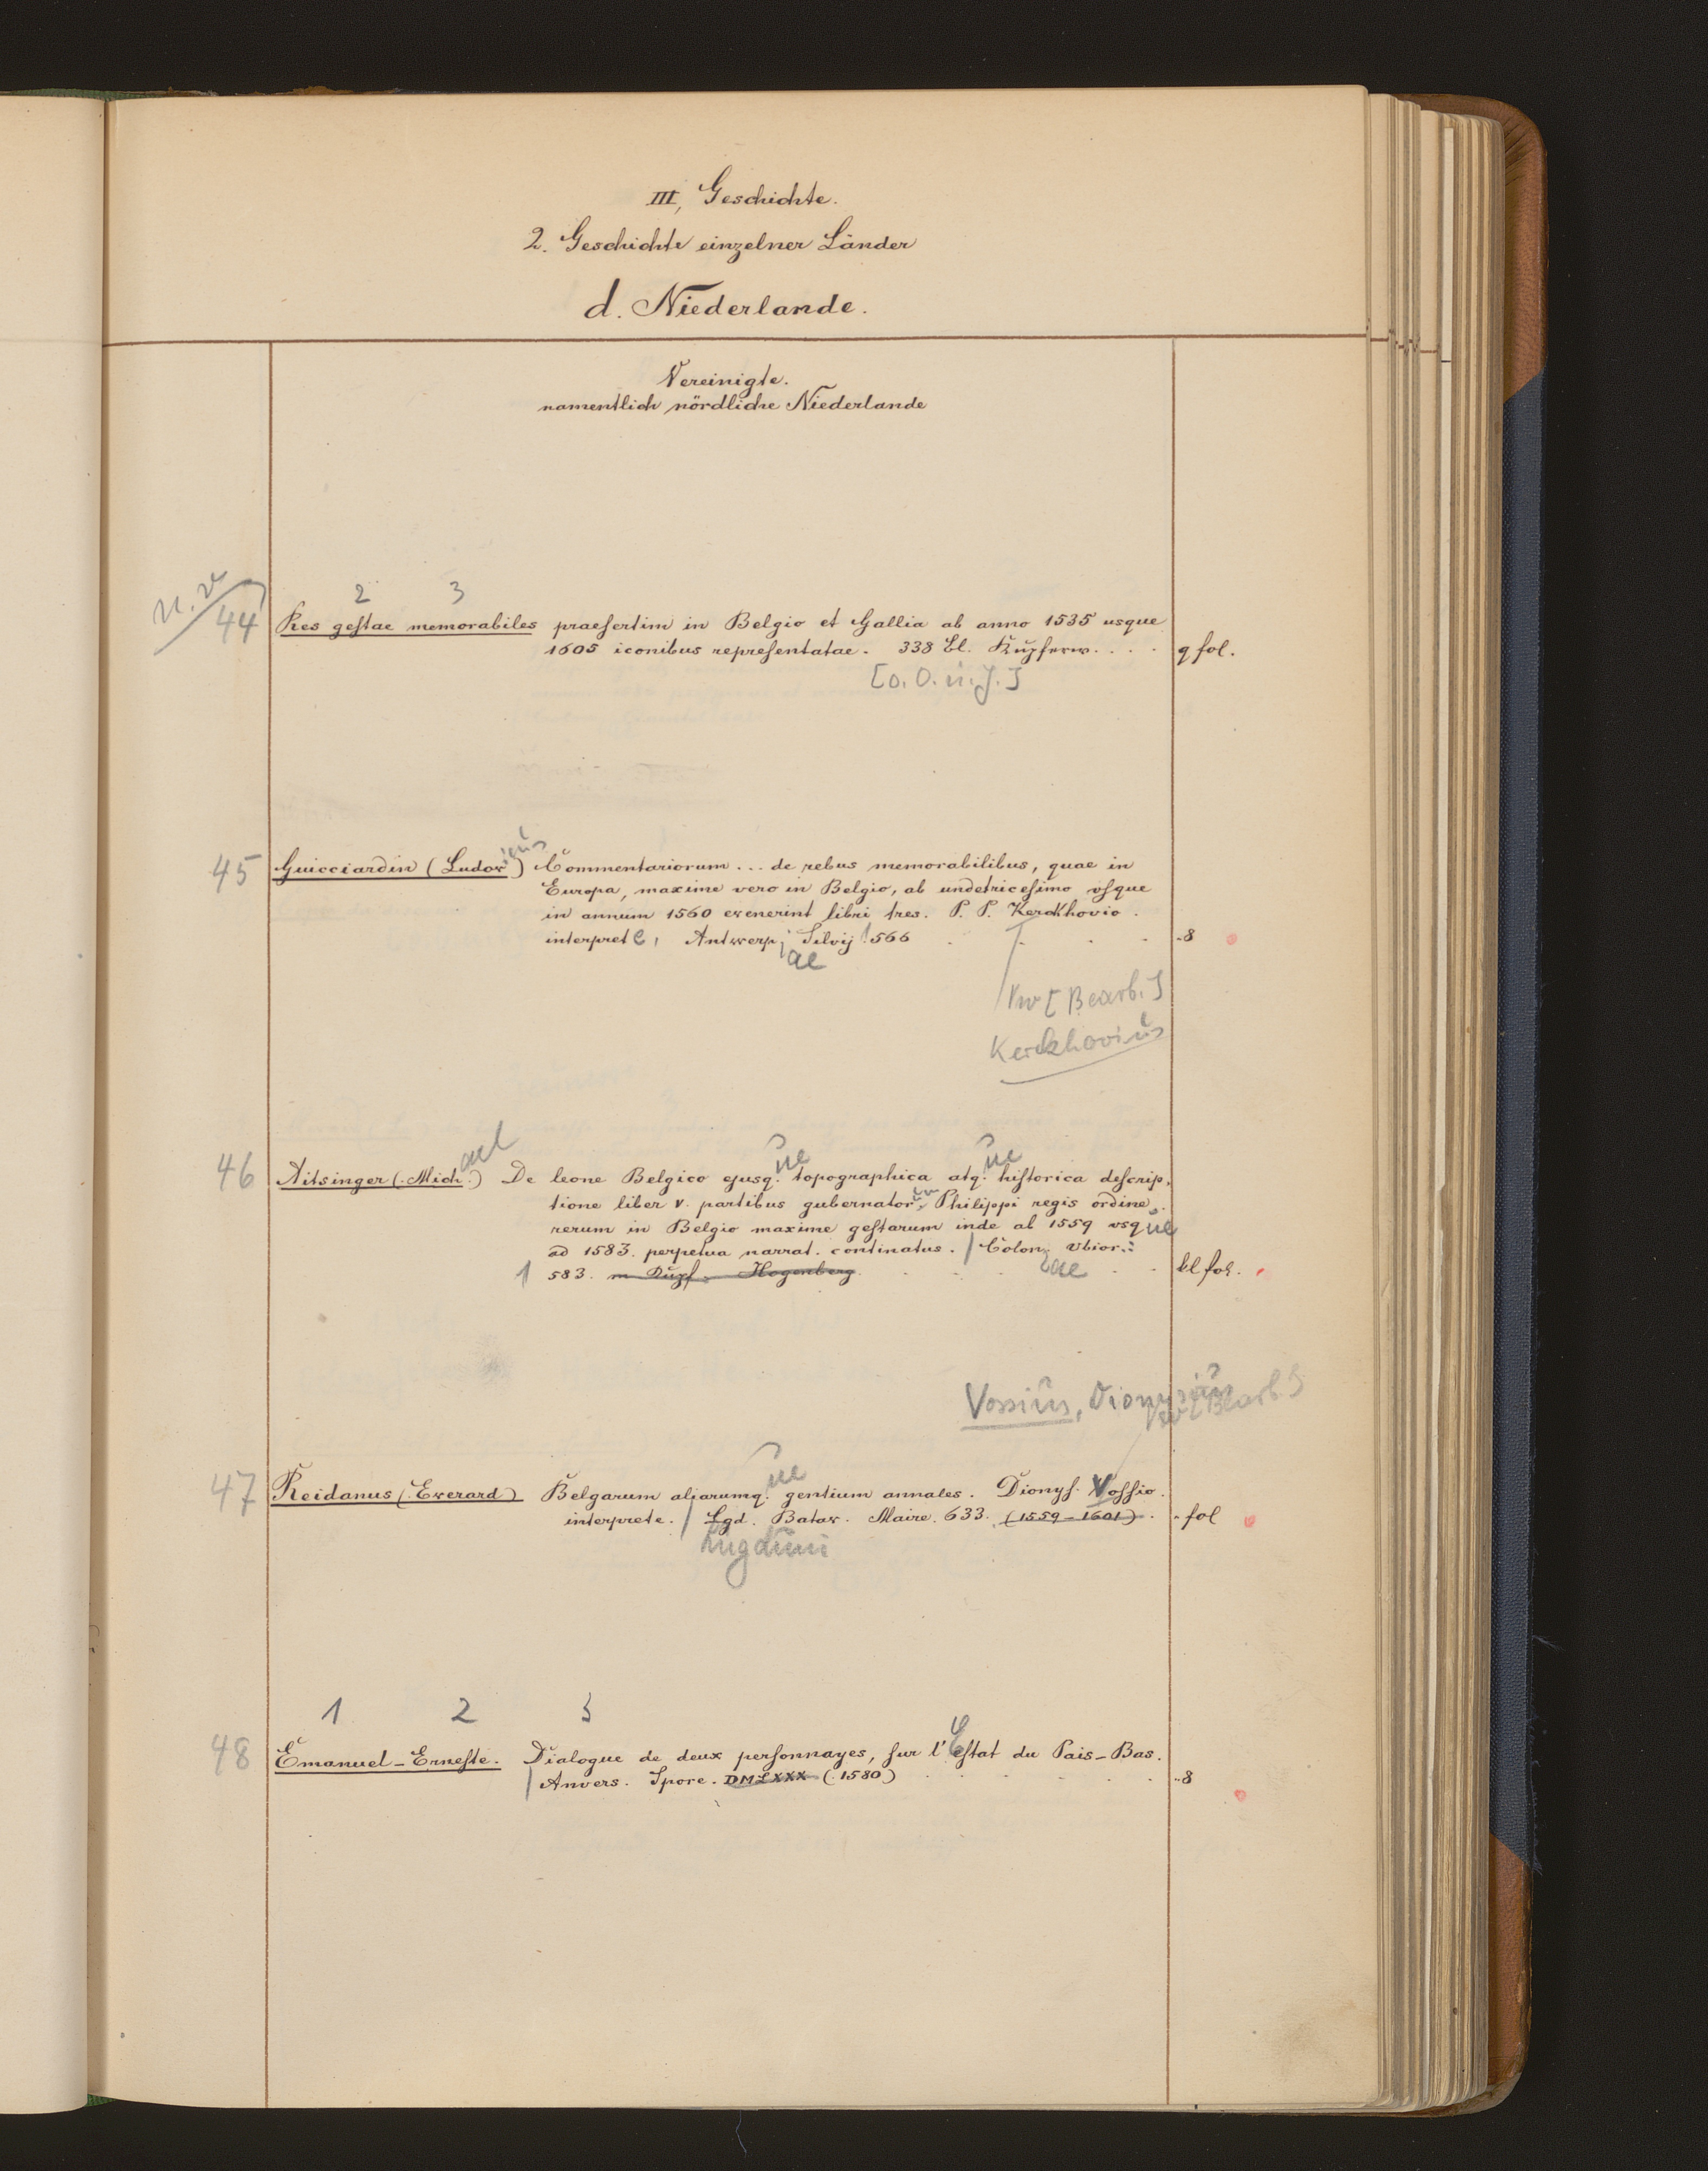 III, Geschichte.
2. Geschichte einzelner Länder
d. Niederlande.
Vereinigte.
namentlich nördliche Niederlande
2 3
44 Res gestae memorabiles praesertim in Belgio et Gallia ab anno 1535 usque
1605 iconibus representatae. 338 Bl. Kupferw. . . . q fol.
[o. O. u. J.]
icus
45 Guicciardin (Ludov) Commentariorum ... de rebus memorabilibus, quae in
Europa, maxime vero in Belgio, ab undetricesimo vsque
in annum 1560 evenerint libri tres. P. P. Kerckhovio.
interprete, Antwerp; Silvij 1566 . . . . 8
ae
Vw [Bearb.]
Kerckhovius
ael ue ue
46 Aitsinger (Mich.) De leone Belgico ejusq. topographica atq. historica descrip,
tione liber v. partibus gubernator. um Philippi regis ordine.
rerum in Belgio maxime gestarum inde ab 1559 vsq ue
ad 1583. perpetua narrat. continatus. | Colon. Vbior.
1 583. m Kupf. Hogenberg. . . . ae . . kl fol.
Vossius, Dionysius
Vw [Bearb.]
ue
47 Reidanus (Everard) Belgarum aliarumq. gentium annales. Dionys. Vossio.
interprete. | Lgd. Batav. Maire. 633. (1559-1601). fol
Lugduni
1 2 3
48 Emanuel-Erneste. Dialogue de deux personnayes, sur l'Estat du Pais-Bas.
| Anvers. Spore. DMLXXX (1580) . . . . . 8